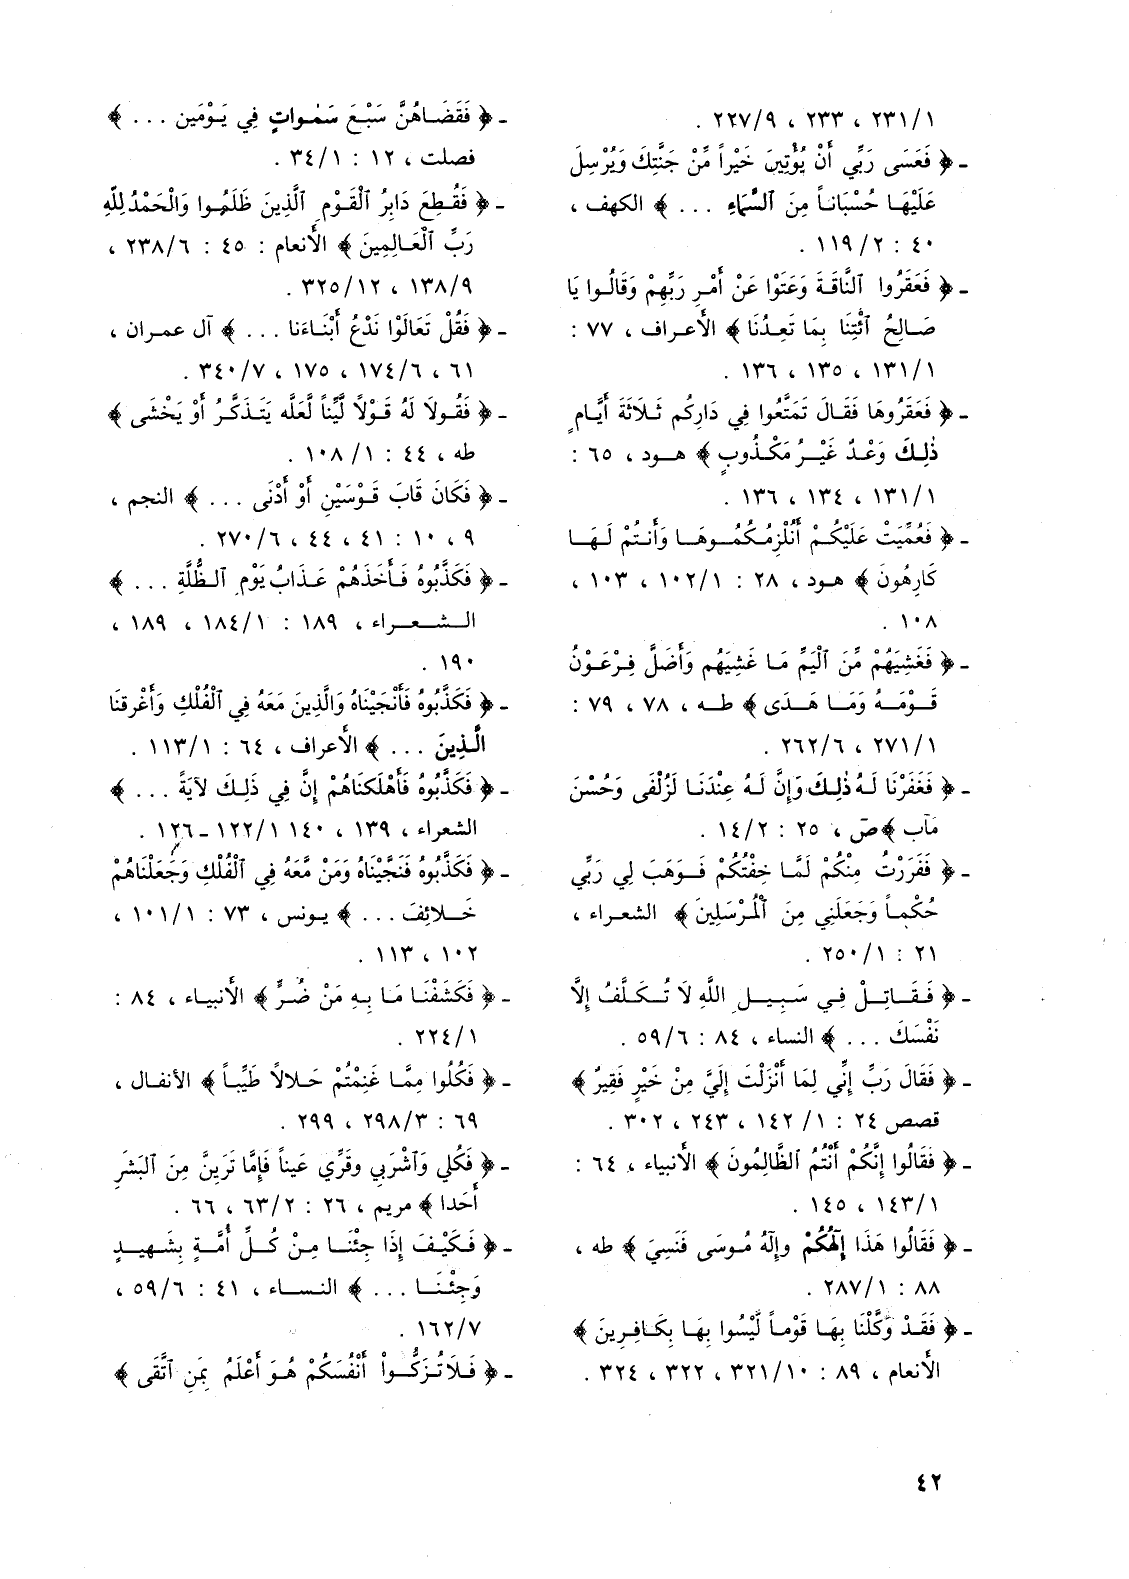 ٢٣١/١ ، ٢٣٣ ، ٢٢٧/٩ .
ـ ﴿ فَعَسَى رَبِّي أَنْ يُؤْتِيَنِ خَيْراً مِّنْ جَنَّتِكَ وَيُرْسِلَ
عَلَيْهَا حُسْبَاناً مِنَ ٱلسَّمَاءِ ... ﴾ الكهف ،
٤٠ : ١١٩/٢ .
ـ ﴿ فَعَقَرُوا ٱلنَّاقَةَ وَعَتَوْا عَنْ أَمْرِ رَبِّهِمْ وَقَالُوا يَا
صَالِحُ ٱئْتِنَا بِمَا تَعِدُنَا ﴾ الأعراف ، ٧٧ :
١٣١/١ ، ١٣٥ ، ١٣٦ .
ـ ﴿ فَعَقَرُوهَا فَقَالَ تَمَتَّعُوا فِي دَارِكُم ثَلَاثَةَ أَيَّامٍ
ذٰلِكَ وَعْدٌ غَيْرُ مَكْذُوبٍ ﴾ هود ، ٦٥ :
١٣١/١ ، ١٣٤ ، ١٣٦ .
ـ ﴿ فَعُمِّيَتْ عَلَيْكُمْ أَنُلْزِمُكُمُوهَا وَأَنتُمْ لَهَا
كَارِهُونَ ﴾ هود ، ٢٨ : ١٠٢/١ ، ١٠٣ ،
١٠٨ .
ـ ﴿ فَغَشِيَهُمْ مِّنَ ٱلْيَمِّ مَا غَشِيَهُم وَأَضَلَّ فِرْعَوْنُ
قَوْمَهُ وَمَا هَدَى ﴾ طه ، ٧٨ ، ٧٩ :
٢٧١/١ ، ٢٦٢/٦ .
ـ ﴿ فَغَفَرْنَا لَهُ ذٰلِكَ وَإِنَّ لَهُ عِنْدَنَا لَزُلْفَى وَحُسْنَ
مَآب ﴾ صَ ، ٢٥ : ١٤/٢ .
ـ ﴿ فَفَرَرْتُ مِنْكُمْ لَمَّا خِفْتُكُمْ فَوَهَبَ لِي رَبِّي
حُكْماً وَجَعَلَنِي مِنَ ٱلْمُرْسَلِينَ ﴾ الشعراء ،
٢١ : ٢٥٠/١ .
ـ ﴿ فَقَاتِلْ فِي سَبِيلِ اللَّهِ لَا تُكَلَّفُ إِلَّا
نَفْسَكَ ... ﴾ النساء ، ٨٤ : ٥٩/٦ .
ـ ﴿ فَقَالَ رَبِّ إِنِّي لِمَا أَنْزَلْتَ إِلَيَّ مِنْ خَيْرٍ فَقِيرٌ ﴾
قصص ٢٤ : ١/ ١٤٢ ، ٢٤٣ ، ٣٠٢ .
ـ ﴿ فَقَالُوا إِنَّكُمْ أَنْتُمُ ٱلظَّالِمُونَ ﴾ الأنبياء ، ٦٤ :
١٤٣/١ ، ١٤٥ .
ـ ﴿ فَقَالُوا هَذَا إِلَهُكُمْ وإِلَهُ مُوسَى فَنَسِيَ ﴾ طه ،
٨٨ : ٢٨٧/١ .
ـ ﴿ فَقَدْ وَكَّلْنَا بِهَا قَوْماً لَّيْسُوا بِهَا بِكَافِرِينَ ﴾
الأنعام ، ٨٩ : ٣٢١/١٠ ، ٣٢٢ ، ٣٢٤ .
ـ ﴿ فَقَضَاهُنَّ سَبْعَ سَمٰوَاتٍ فِي يَوْمَين ... ﴾
فصلت ، ١٢ : ٣٤/١ .
ـ ﴿ فَقُطِعَ دَابِرُ ٱلْقَوْمِ ٱلَّذِينَ ظَلَمُوا وَالْحَمْدُ لِلَّهِ
رَبِّ ٱلْعَالِمِينَ ﴾ الأنعام : ٤٥ : ٢٣٨/٦ ،
١٣٨/٩ ، ٣٢٥/١٢ .
ـ ﴿ فَقُلْ تَعَالَوْا نَدْعُ أَبْنَاءَنا ... ﴾ آل عمران ،
٦١ ، ١٧٤/٦ ، ١٧٥ ، ٣٤٠/٧ .
ـ ﴿ فَقُولَا لَهُ قَوْلاً لَّيِّناً لَّعَلَّه يَتَذَكَّرُ أَوْ يَخْشَى ﴾
طه ، ٤٤ : ١٠٨/١ .
ـ ﴿ فَكَانَ قَابَ قَوْسَيْنِ أَوْ أَدْنَى ... ﴾ النجم ،
٩ ، ١٠ : ٤١ ، ٤٤ ، ٢٧٠/٦ .
ـ ﴿ فَكَذَّبُوهُ فَأَخَذَهُمْ عَذَابُ يَوْمِ ٱلظُّلَّةِ ... ﴾
الشعراء ، ١٨٩ : ١٨٤/١ ، ١٨٩ ،
١٩٠ .
ـ ﴿ فَكَذَّبُوهُ فَأَنْجَيْنَاهُ وَالَّذِينَ مَعَهُ فِي ٱلْفُلْكِ وَأَغْرقنَا
الَّذِينَ ... ﴾ الأعراف ، ٦٤ : ١١٣/١ .
ـ ﴿ فَكَذَّبُوهُ فَأَهْلَكنَاهُمْ إِنَّ فِي ذَلِكَ لآيَةً ... ﴾
الشعراء ، ١٣٩ ، ١٤٠ ١٢٢/١ـ١٢٦ .
ـ ﴿ فَكَذَّبُوهُ فَنَجَّيْنَاهُ وَمَنْ مَّعَهُ فِي ٱلْفُلْكِ وَجَعَلْنَاهُمْ
خَلائِفَ ... ﴾ يونس ، ٧٣ : ١٠١/١ ،
١٠٢ ، ١١٣ .
ـ ﴿ فَكَشَفْنَا مَا بِهِ مَنْ ضُرٍّ ﴾ الأنبياء ، ٨٤ :
٢٢٤/١ .
ـ ﴿ فَكُلُوا مِمَّا غَنِمْتُمْ حَلالاً طَيِّباً ﴾ الأنفال ،
٦٩ : ٢٩٨/٣ ، ٢٩٩ .
ـ ﴿ فَكُلِي وَٱشْرَبِي وقَرِّي عَيناً فَإِمَّا تَرَيِنَّ مِنَ ٱلبَشَرِ
أَحَدا ﴾ مريم ، ٢٦ : ٦٣/٢ ، ٦٦ .
ـ ﴿ فَكَيْفَ إِذَا جِئْنَا مِنْ كُلِّ أُمَّةٍ بِشَهِيدٍ
وَجِئْنَا ... ﴾ النساء ، ٤١ : ٥٩/٦ ،
١٦٢/٧ .
ـ ﴿ فَلَا تُزَكُّواْ أَنْفُسَكُمْ هُوَ أَعْلَمُ بِمَنِ ٱتَّقَى ﴾
٤٢